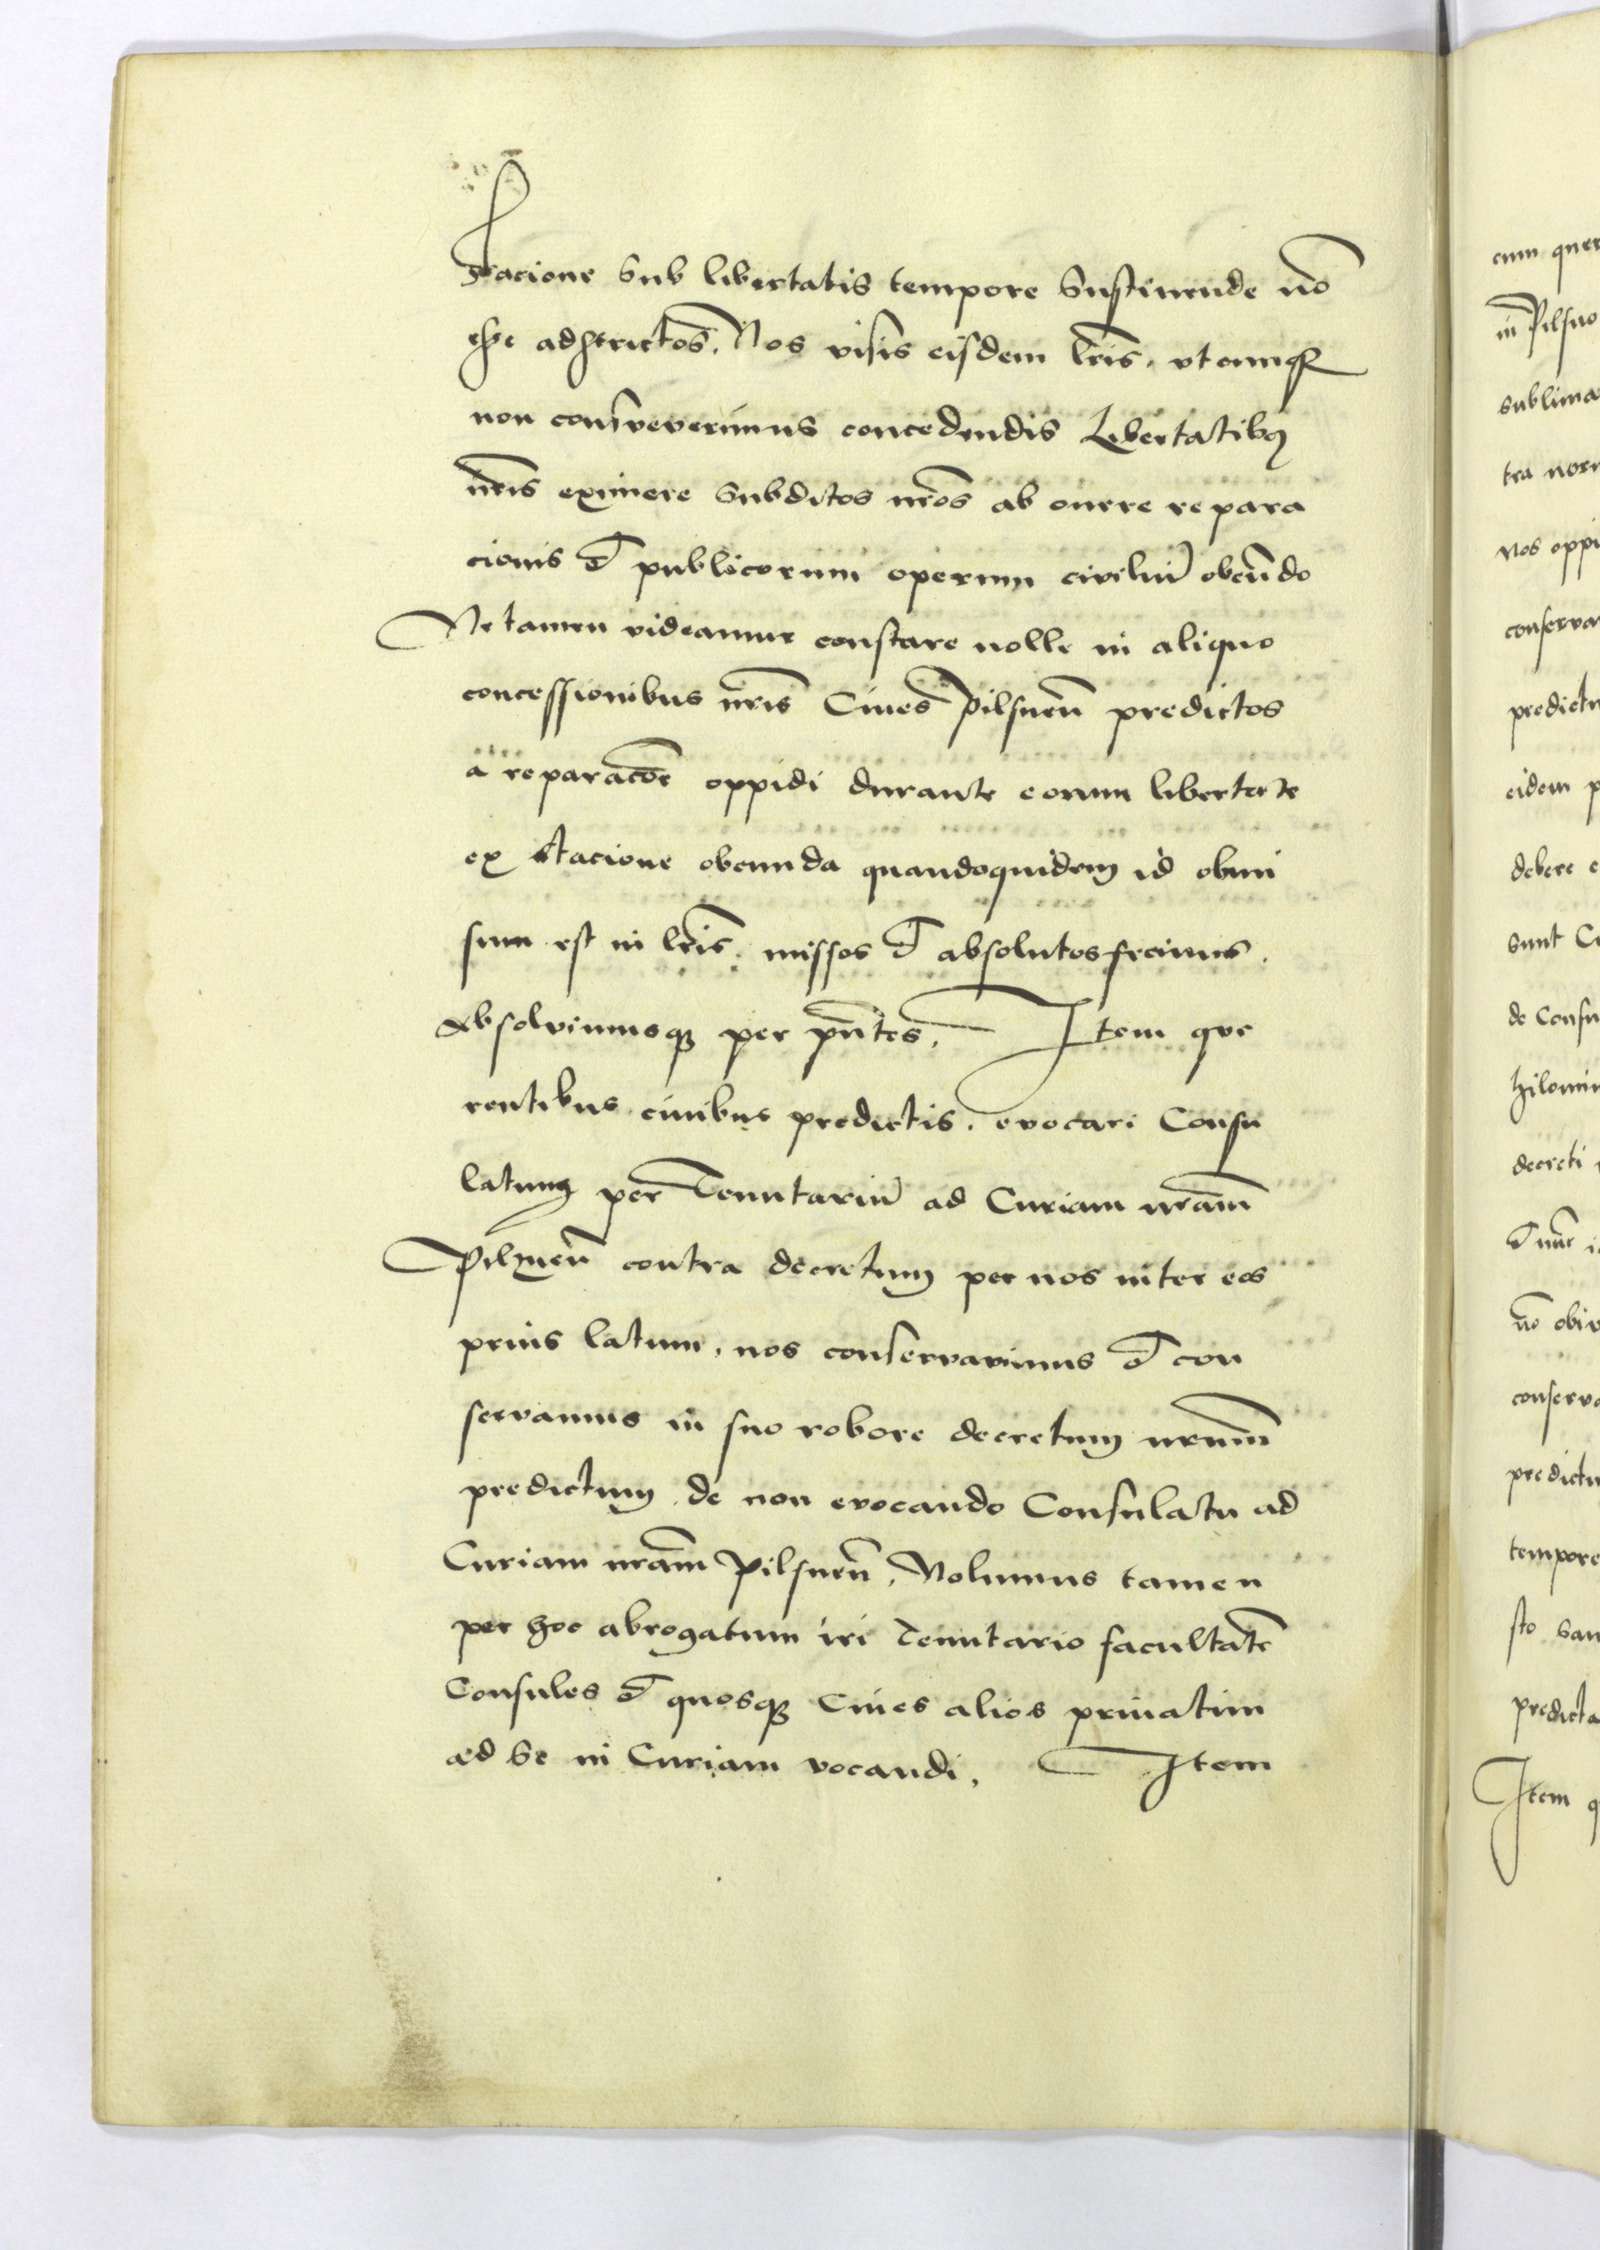 stacione sub libertatis tempore sustinende nō
esse adstrictos. Nos visis eisdem lrīs, vtcunqʒ
non consveverimus concedendis Libertatibꝫ
nrīs eximere subditos nrōs ab onere repara
cionis et publicorum operum civiliū obeūdo
Ne tamen videamur constare nolle in aliquo
concessionibus nrīs Ciues Pilsnen̄ predictos
a reparacōe oppidi durante eorum libertate
ex stacione obeunda quandoquidem id obmi
sum est in lrīs, missos et absolutos fecimus.
Absolvimusqʒ per pn̄tes, Item que
rentibus ciuibus predictis, evocari Consu
latum per Tenutariū ad Curiam nrām
Pilznen̄ contra decretum per nos inter eos
prius latum, nos conservavimus et con
servamus in suo robore decretum nrūm
predictum de non evocando Consulatu ad
Curiam nrām Pilsnen̄, Nolumus tamen
per hoc abrogatum iri Tenutario facultatē
Consules et quosqʒ Ciues alios priuatim
ad se in Curiam vocandi, Item
cum quer
in Pilsno
sublima
tra nor
Nos oppi
conserva
predictu
eidem p
debere e
sunt C
de Consu
hilomin
decreti
et nunc
nō obi
conserv
predictu
tempore
sto san
predicta
Item q